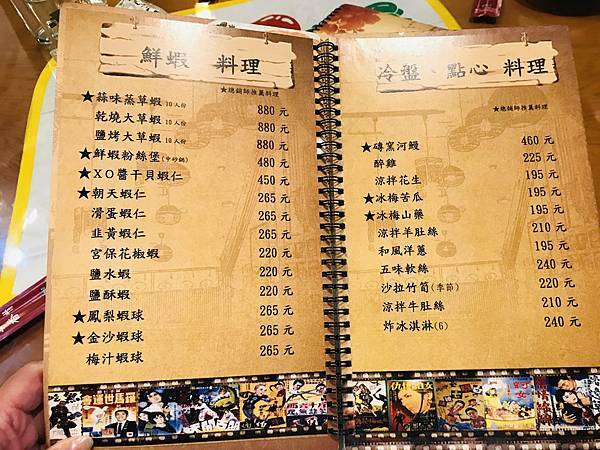 鮮蝦 料理
★總鋪師推薦料理
★蒜味蒸草蝦 10人份 880 元
乾燒大草蝦 10人份 880 元
鹽烤大草蝦 10人份 880 元
★鮮蝦粉絲堡(中砂鍋) 480 元
★XO醬干貝蝦仁 450 元
★朝天蝦仁 265 元
滑蛋蝦仁 265 元
韭黃蝦仁 265 元
宮保花椒蝦 220 元
鹽水蝦 220 元
鹽酥蝦 220 元
★鳳梨蝦球 265 元
★金沙蝦球 265 元
梅汁蝦球 265 元
冷盤、點心 料理
★總鋪師推薦料理
★磚窯河鰻 460 元
醉雞 225 元
涼拌花生 195 元
★冰梅苦瓜 195 元
★冰梅山藥 195 元
涼拌羊肚絲 210 元
和風洋蔥 195 元
五味軟絲 240 元
沙拉竹筍(季節) 220 元
涼拌牛肚絲 210 元
炸冰淇淋(6) 240 元